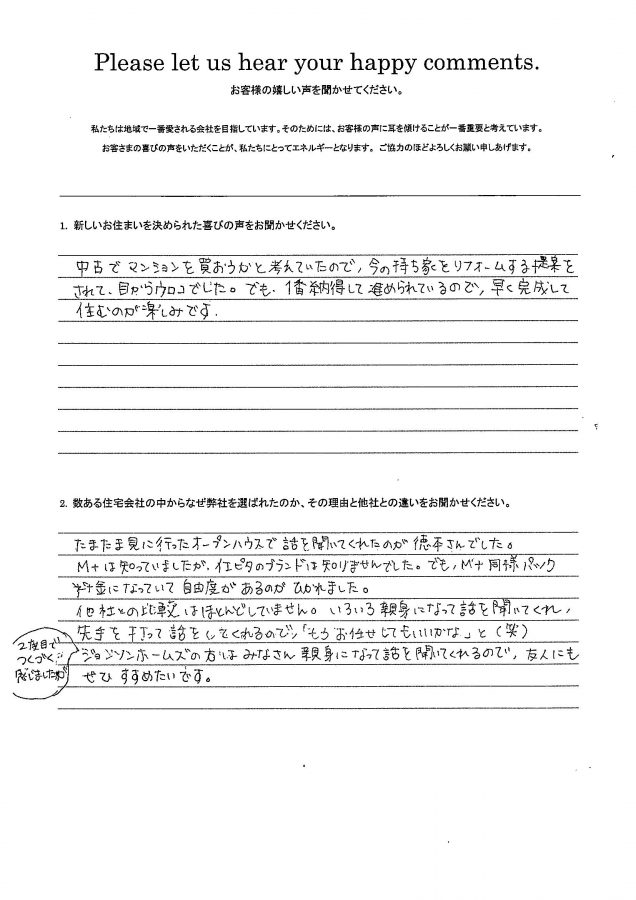 Please let us hear your happy comments.
お客様の嬉しい声を聞かせてください。
私たちは地域で一番愛される会社を目指しています。そのためには、お客様の声に耳を傾けることが一番重要と考えています。
お客さまの喜びの声をいただくことが、私たちにとってエネルギーとなります。ご協力のほどよろしくお願い申しあげます。
1. 新しいお住まいを決められた喜びの声をお聞かせください。
中古でマンションを買おうかと考えていたので、今の持ち家をリフォームする提案を
されて、目からウロコでした。でも、1番納得して進められているので、早く完成して
住むのが楽しみです.
2. 数ある住宅会社の中からなぜ弊社を選ばれたのか、その理由と他社との違いをお聞かせください。
たまたま見に行ったオープンハウスで話を聞いてくれたのが徳本さんでした。
M+は知っていましたが、イエピタのブランドは知りませんでした。でも、M+同様パック
料金になっていて自由度があるのがひかれました。
他社との比較はほとんどしていません。いろいろ親身になって話を聞いてくれ、
先手を打って話をしてくれるので、「もうお任せしてもいいかな」と(笑)
ジョンソンホームズの方はみなさん親身になって話を聞いてくれるので、友人にも
ぜひすすめたいです。
2度目で
つくづく
感じましたが